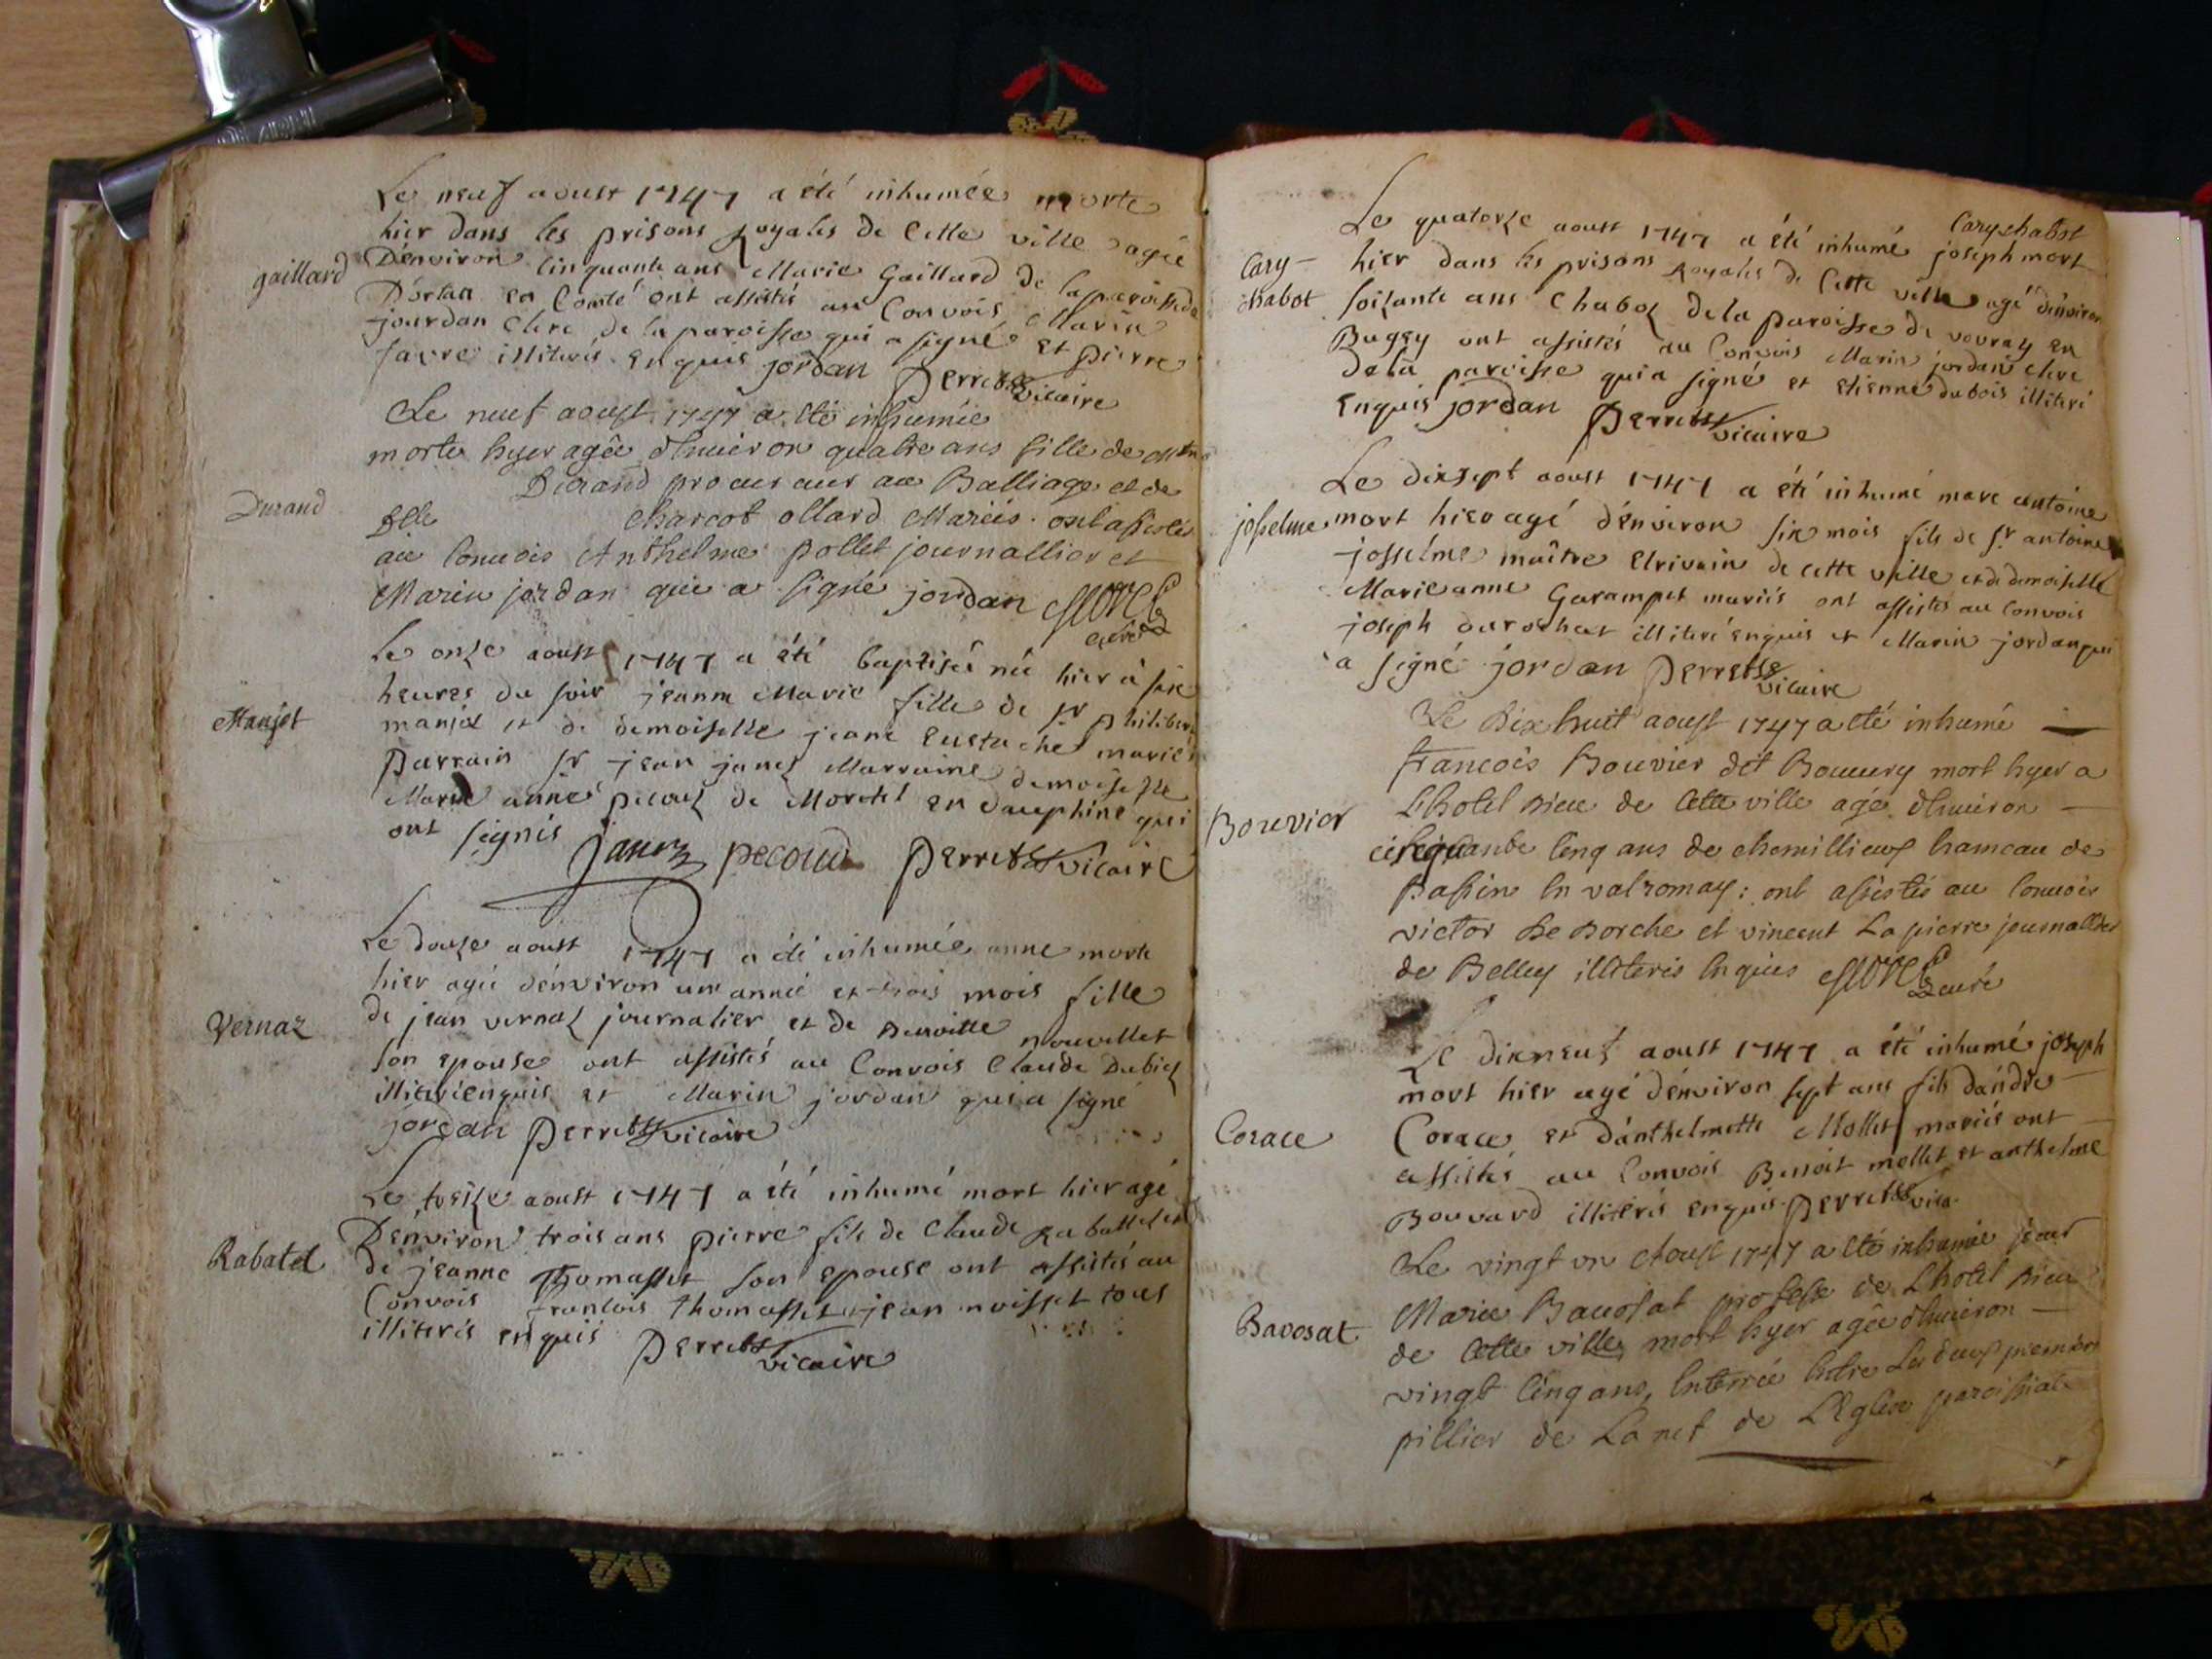 Le neuf aoust 1747 a été inhumée morte
hier dans les prisons royales de cette ville agée
gaillard
D'environ cinquante ans Marie Gaillard de la paroisse de
Dortan en Comté ont assistés au Convois Marin
jourdan Clerc de la paroisse qui a signé et pierre
favre illiterés enquis jordan Perret vicaire
Le neuf aoust 1747 a été inhumée
morte hyer agée d'enuiron quatre ans fille de
Durand
Durand procureur au Balliage et de
Dlle Charcot ollard Mariés ont assistés
au Conuois Anthelme pollet journallier et
Marin jordan qui a signé jordan Morel
curé
Le onze aoust 1747 a été baptisée née hier à six
heures du soir jeanne Marie fille de sr philibert
Manjot
manjot et de demoiselle jeane Eustache mariés
Parrain sr jean janez Marraine demoiselle
Marie anne pecouz de Morestel en dauphiné qui
ont signés janez pecoud Perret vicaire
Le douze aoust 1747 a été inhumée anne morte
hier agée d'environ une année et trois mois fille
Vernaz
de jean vernaz journalier et de nouvillet
son epouse ont assistés au Convois Claude Dubiez
illiteré enquis et Marin jordan qui a signé
jordan Perret vicaire
Le treize aoust 1747 a été inhumé mort hier agé
D'environ trois ans pierre fils de Claude Rabattel et
Rabatel
de jeanne Thomasset son epouse ont assistés au
Convois francois thomasset et jean noisset tous
illiterés enquis Perret vicaire
Cary chabot
Le quatorze aoust 1747 a été inhumé joseph mort
Cary-
hier dans les prisons royales de cette ville agé d'environ
chabot
soixante ans Chaboz de la paroisse de vouray en
Bugey ont assistés au Convois Marin jordan clerc
de la paroisse qui a signé et etienne dubois illiteré
enquis jordan Perret vicaire
Le dixsept aoust 1747 a été inhumé marc antoine
josselme
mort hier agé d'environ six mois fils de sr antoine
josselme maître Ecrivain de cette ville et de demoiselle
Marie anne Garampet mariés ont assistés au Convois
joseph durochat illiteré enquis et Marin jordan qui
a signé jordan Perret vicaire
Le dix huit aoust 1747 a été inhumé
francois Bouvier dit Bouuery mort hyer a
Bouvier
L'hotel Dieu de Cette ville agé d'enuiron
cinquante Cinq ans de chemillieux hameau de
Passin En valromay : ont assistés au Conuois
victor De Borche et vincent La pierre journallier
de Belley illiterés Enquis Morel curé
Le dixneuf aoust 1747 a été inhumé joseph
mort hier agé d'environ sept ans fils d'andré
Corace
Corace et d'anthelmette Mollet mariés ont
assistés au Convois Benoit mollet et anthelme
Bouvard illiterés enquis Perret vic.
Le vingt un Aoust 1747 a été inhumée sœur
Bavosat
Marie Bauosat professe de L'hotel Dieu
de Cette ville, mort hyer agée d'enuiron
vingt Cinq ans, Enterrée Entre Les deux premiers
pillier de La nef de L'Eglise paroissiale